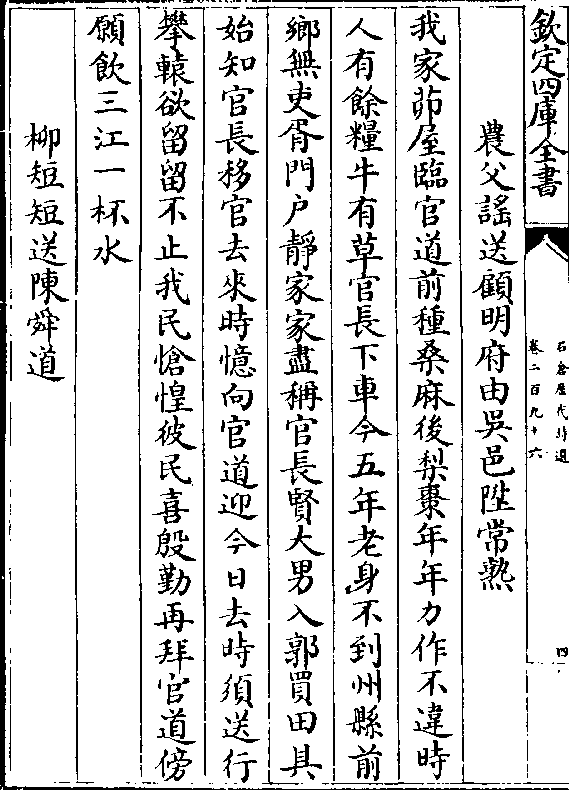 欽定四庫全書
石倉歷代詩選
卷二百九十六
四
農父謠送顧明府由吳邑陞常熟
我家茆屋臨官道前種桑麻後梨棗年年力作不違時
人有餘糧牛有草官長下車今五年老身不到州縣前
鄉無吏胥門户靜家家盡稱官長賢大男入郭買田具
始知官長移官去來時憶向官道迎今日去時須送行
攀轅欲留留不止我民愴惶彼民喜殷勤再拜官道傍
願飲三江一杯水
柳短短送陳舜道